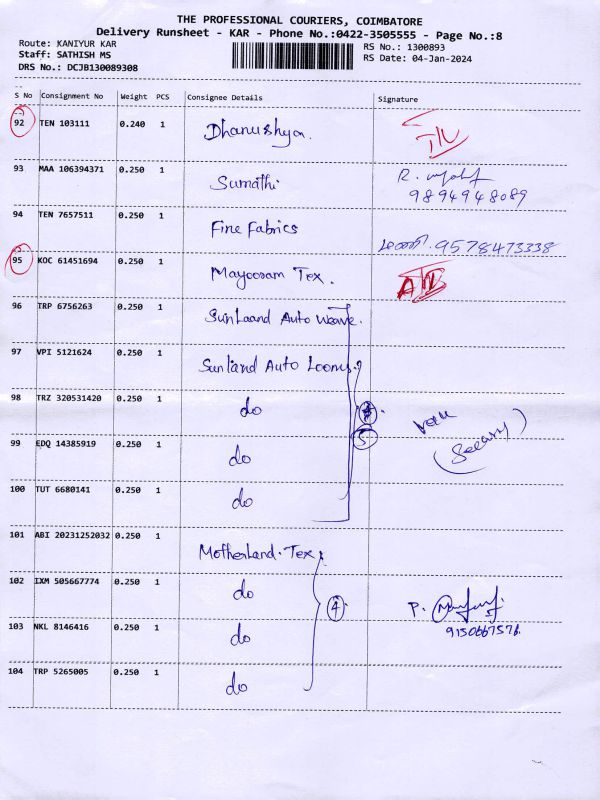 THE PROFESSIONAL COURIERS, COIMBATORE
Delivery Runsheet - KAR - Phone No.:0422-3505555 - Page No.:8
Route: KANIYUR KAR RS No.: 1300893
Staff: SATHISH MS RS Date: 04-Jan-2024
DRS No.: DCJB130089308
S No Consignment No Weight PCS Consignee Details Signature
92 TEN 103111 0.240 1 Dhanushya.
93 MAA 106394371 0.250 1 Sumathi R.
9894948089
94 TEN 7657511 0.250 1 Fine Fabrics 9578473338
95 KOC 61451694 0.250 1 Mayooram Tex.
96 TRP 6756263 0.250 1 SunLaand Auto Weave.
97 VPI 5121624 0.250 1 Sunland Auto Looms.
98 TRZ 320531420 0.250 1 do
5
99 EDQ 14385919 0.250 1 do
100 TUT 6680141 0.250 1 do
101 ABI 20231252032 0.250 1 Motherland. Tex
102 IXM 505667774 0.250 1 do 4 P.
103 NKL 8146416 0.250 1 do
104 TRP 5265005 0.250 1 do